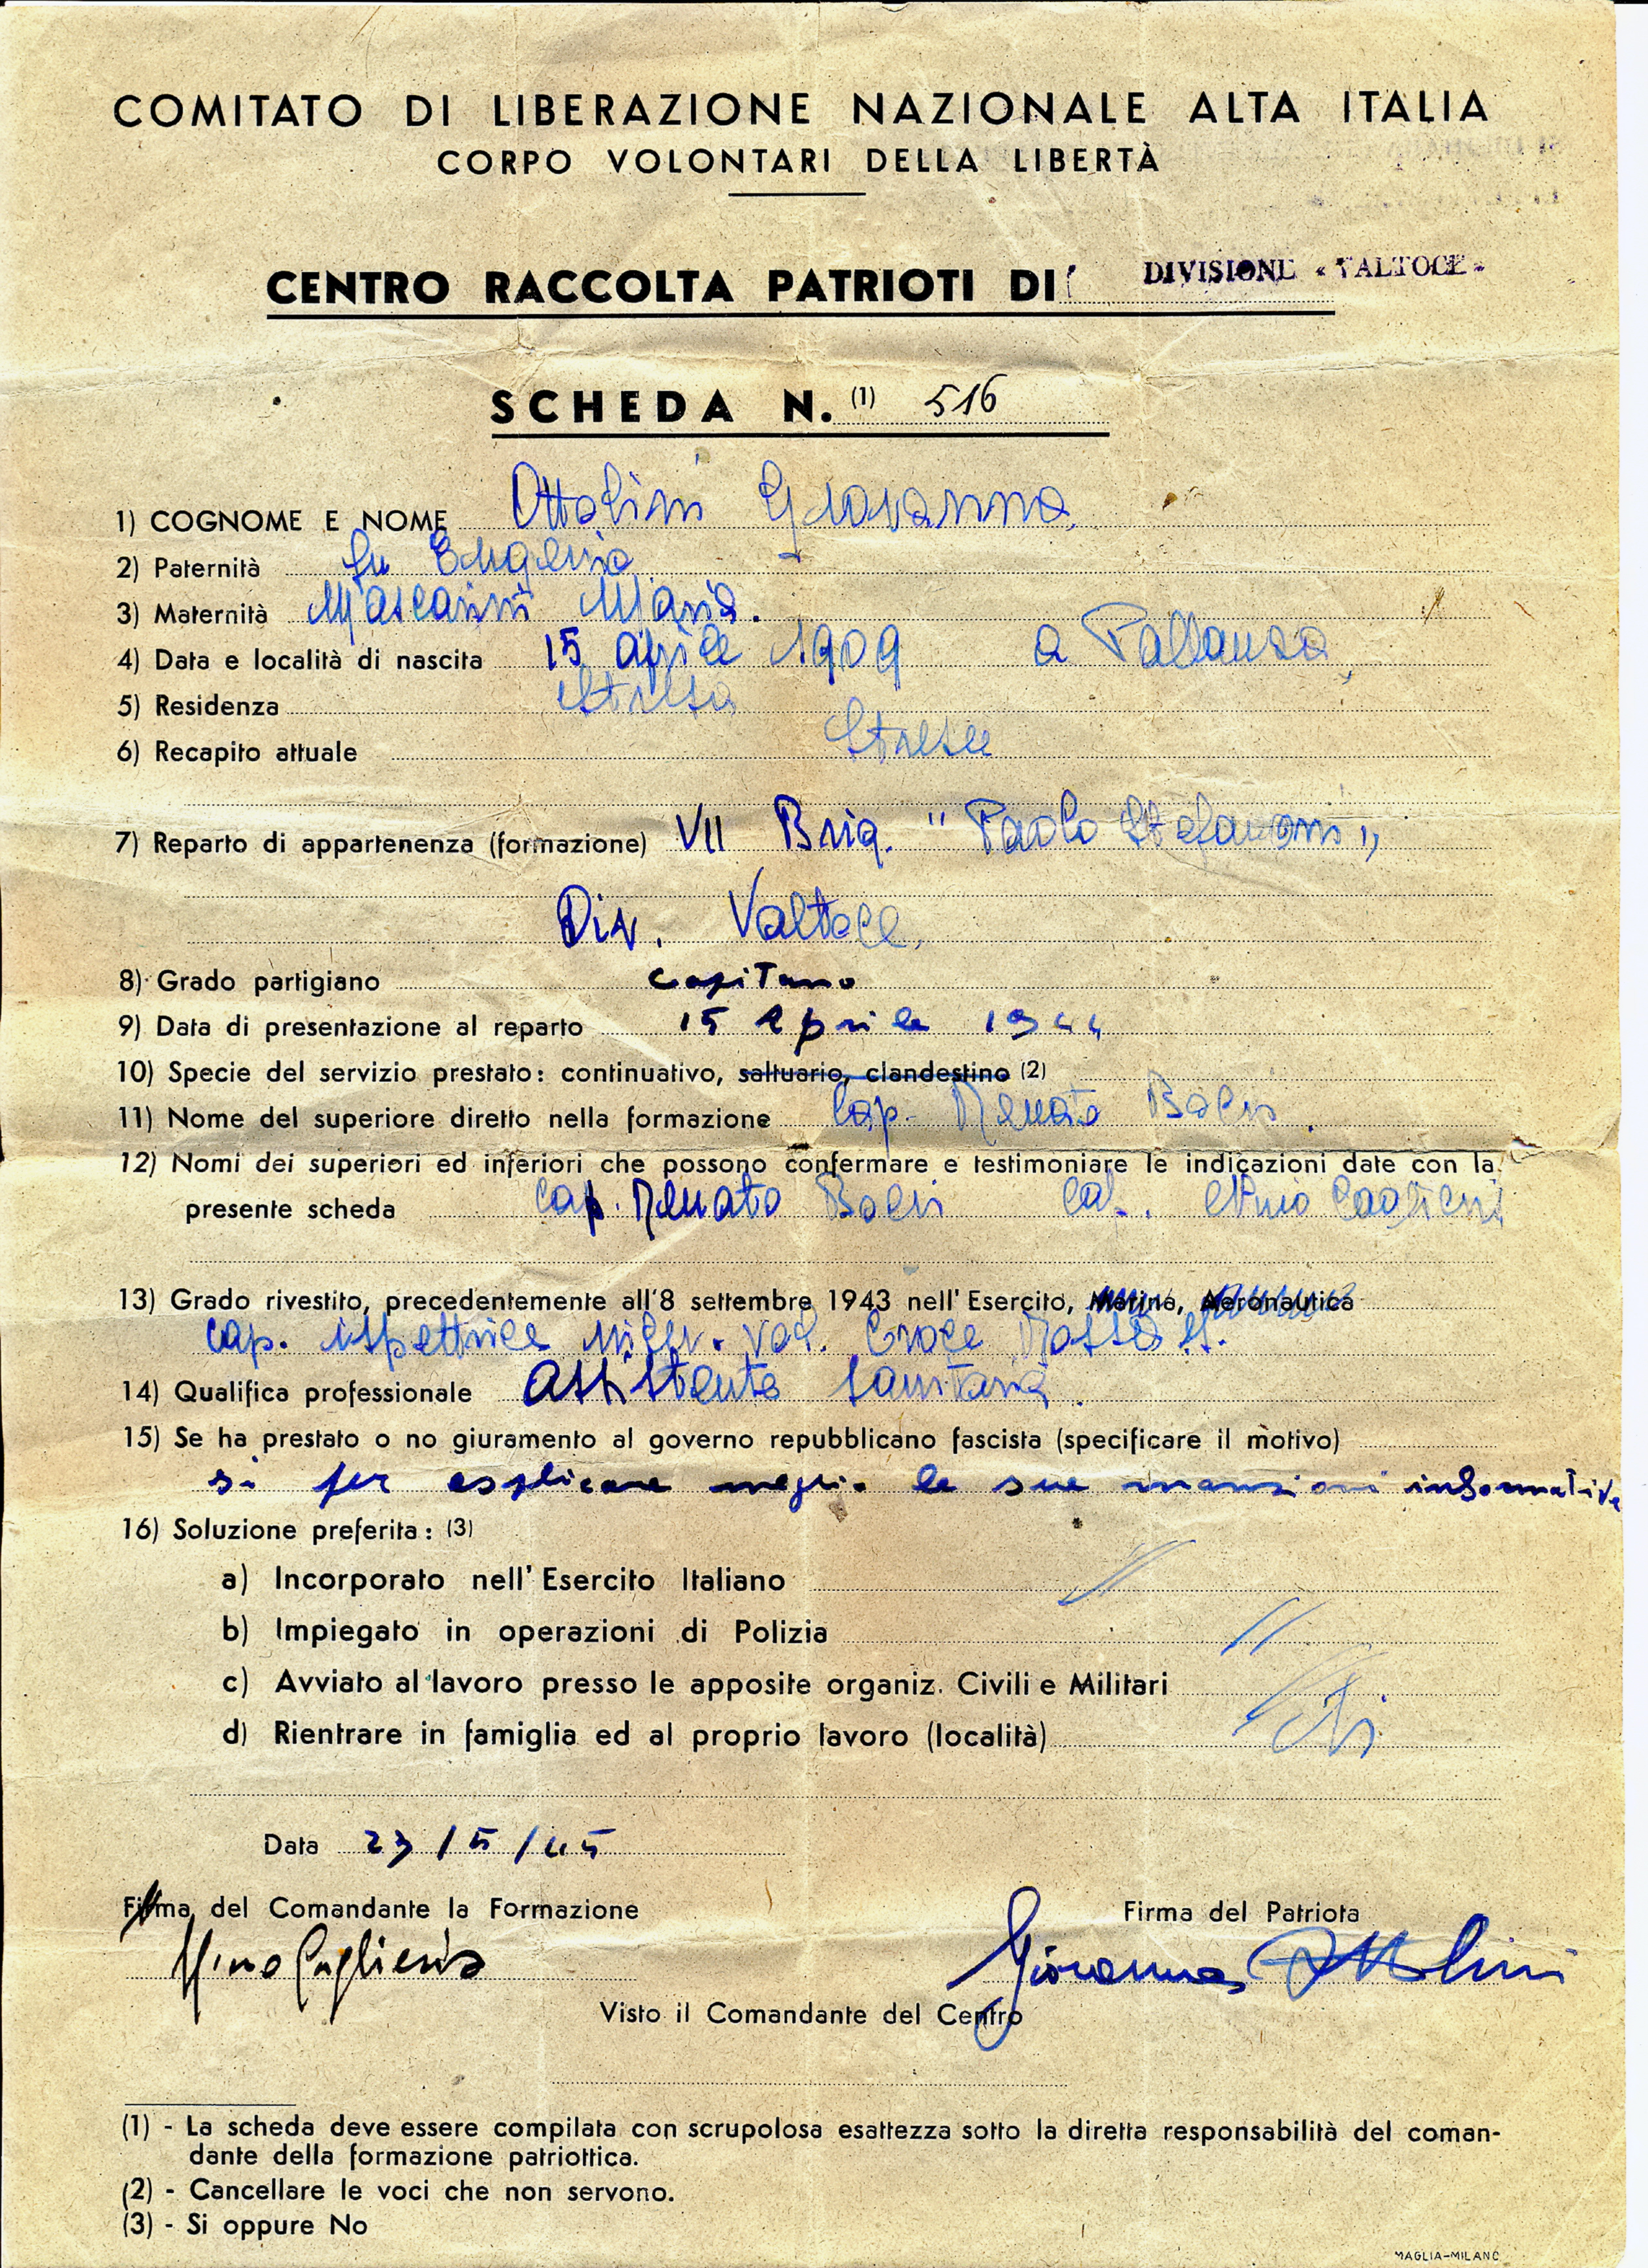 COMITATO DI LIBERAZIONE NAZIONALE ALTA ITALIA
CORPO VOLONTARI DELLA LIBERTÀ
CENTRO RACCOLTA PATRIOTI DI DIVISIONE « VALTOCE »
SCHEDA N. (1) 516
1) COGNOME E NOME Ottolini Giovanna
2) Paternità fu Eugenio
3) Maternità Mascarini Maria.
4) Data e località di nascita 15 aprile 1909 a Pallanza
5) Residenza Stresa
6) Recapito attuale Stresa
7) Reparto di appartenenza (formazione) VII Brig. "Paolo Stefanoni"
Div. Valtoce.
8) Grado partigiano Capitano
9) Data di presentazione al reparto 15 Aprile 1944
10) Specie del servizio prestato: continuativo, saltuario, clandestino (2)
11) Nome del superiore diretto nella formazione Cap. Renato Boeri.
12) Nomi dei superiori ed inferiori che possono confermare e testimoniare le indicazioni date con la
presente scheda Cap. Renato Boeri
13) Grado rivestito, precedentemente all'8 settembre 1943 nell' Esercito, Marina, Aeronautica
Cap. Ispettrice Vol. Croce Rossa
14) Qualifica professionale Assistente Sanitaria.
15) Se ha prestato o no giuramento al governo repubblicano fascista (specificare il motivo)
si per esplicare meglio le sue mansioni informative
16) Soluzione preferita: (3)
a) Incorporato nell' Esercito Italiano //
b) Impiegato in operazioni di Polizia //
c) Avviato al lavoro presso le apposite organiz. Civili e Militari //
d) Rientrare in famiglia ed al proprio lavoro (località) Si
Data 23/5/45
Firma del Comandante la Formazione
Firma del Patriota
Giovanna Ottolini
Visto il Comandante del Centro
(1) - La scheda deve essere compilata con scrupolosa esattezza sotto la diretta responsabilità del coman-
dante della formazione patriottica.
(2) - Cancellare le voci che non servono.
(3) - Si oppure No
MAGLIA-MILANO